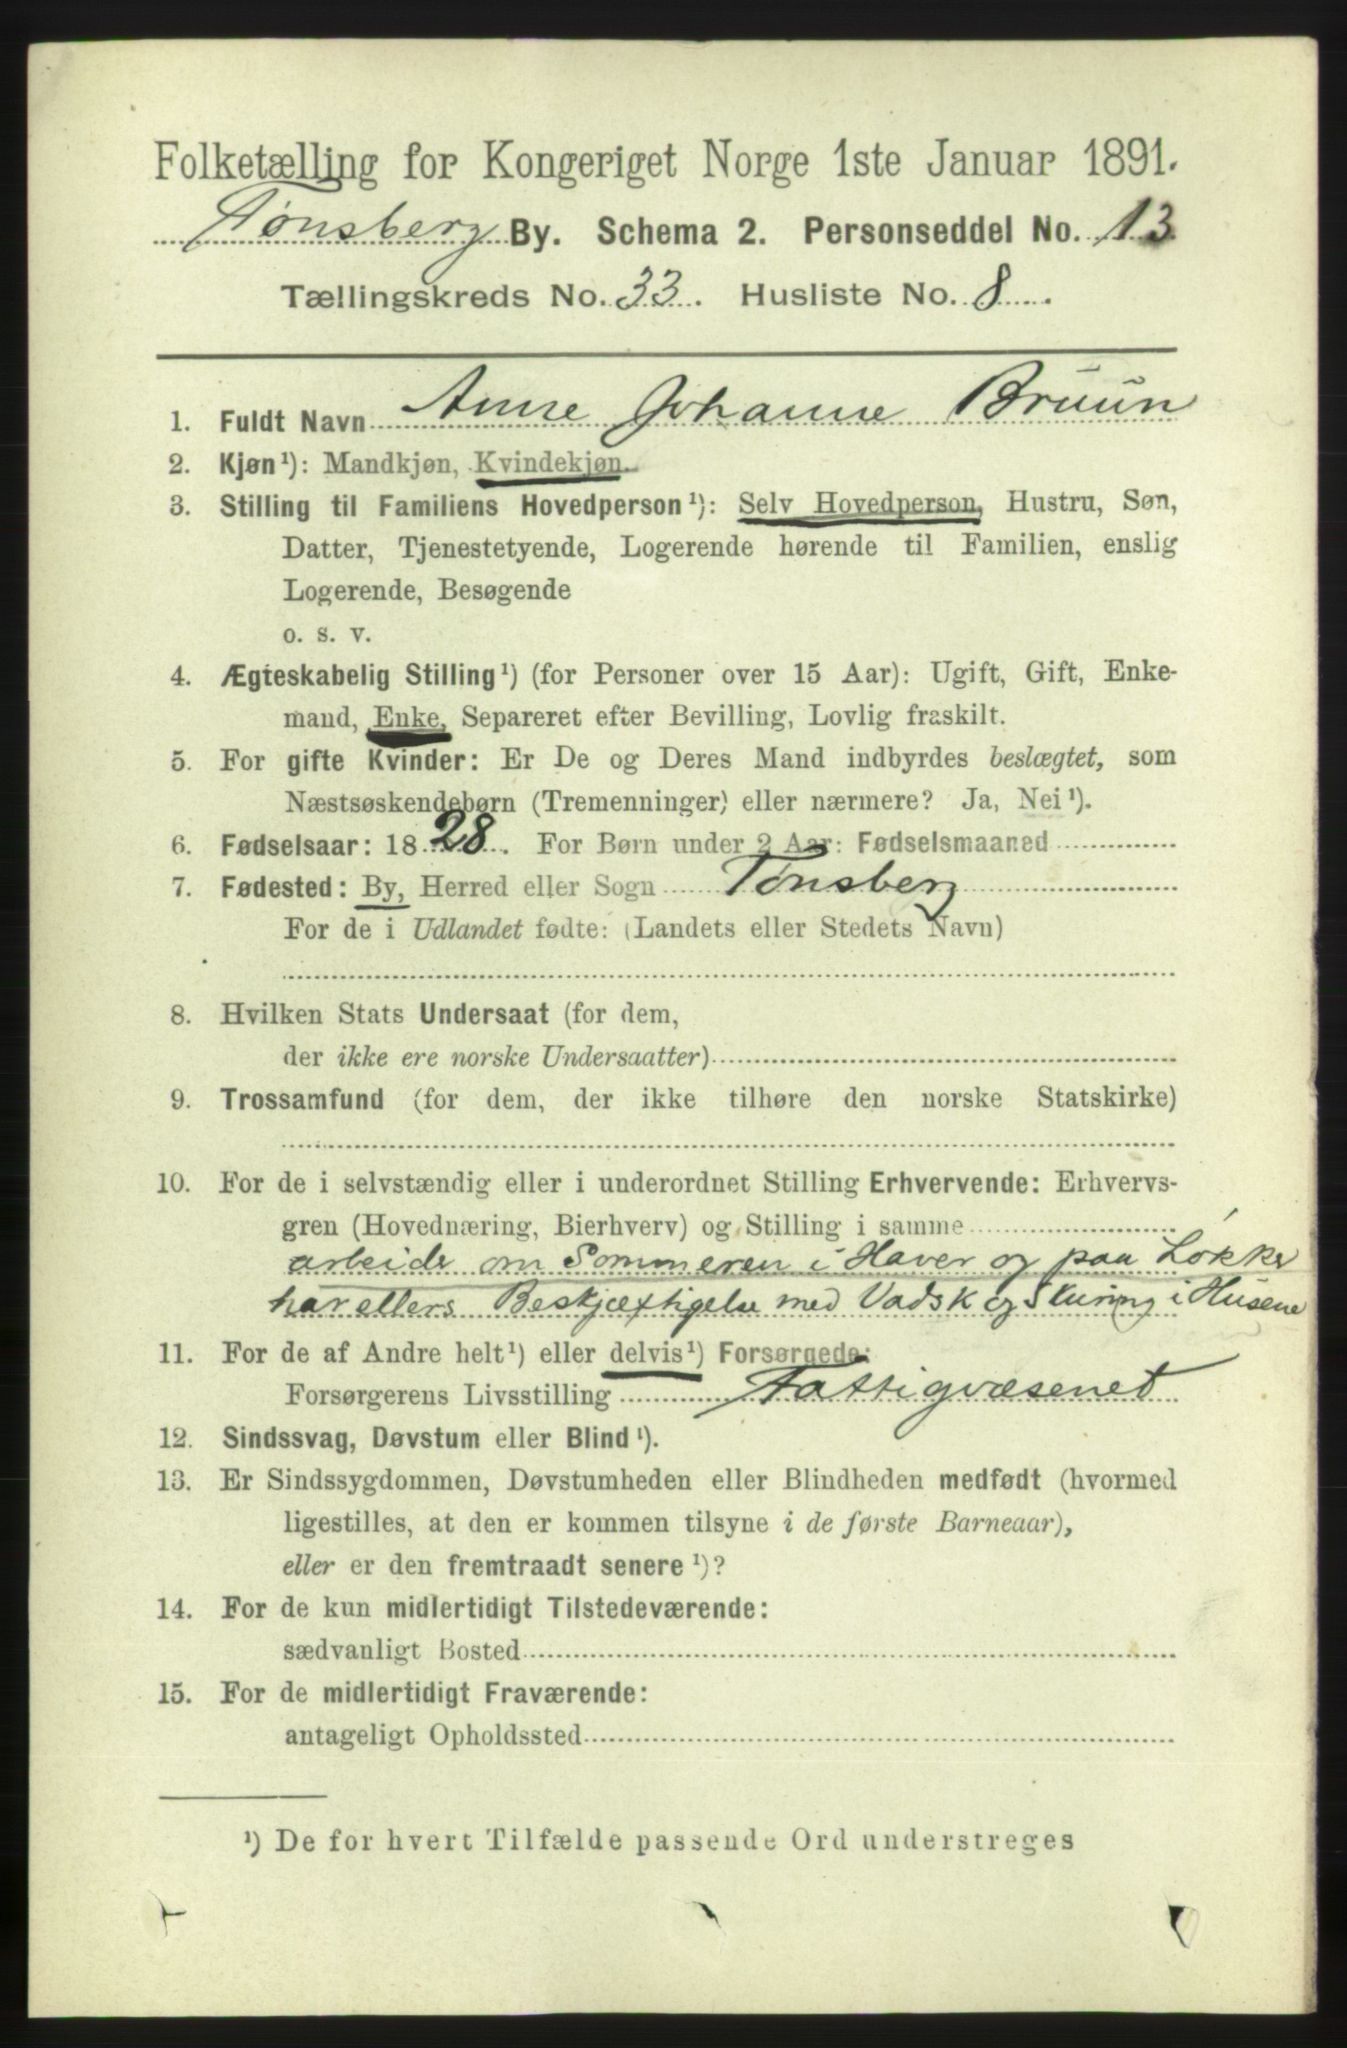 Folketælling for Kongeriget Norge 1ste Januar 1891.
Tønsberg By. Schema 2. Personseddel No. 13
Tællingskreds No. 33. Husliste No. 8.
1. Fuldt Navn Anne Johanne Bruun
2. Kjøn¹): Mandkjøn, Kvindekjøn.
3. Stilling til Familiens Hovedperson¹): Selv Hovedperson, Hustru, Søn,
Datter, Tjenestetyende, Logerende hørende til Familien, enslig
Logerende, Besøgende
o. s. v.
4. Ægteskabelig Stilling¹) (for Personer over 15 Aar): Ugift, Gift, Enke-
mand, Enke, Separeret efter Bevilling, Lovlig fraskilt.
5. For gifte Kvinder: Er De og Deres Mand indbyrdes beslægtet, som
Næstsøskendebørn (Tremenninger) eller nærmere? Ja, Nei¹).
6. Fødselsaar: 1828. For Børn under 2 Aar: Fødselsmaaned
7. Fødested: By, Herred eller Sogn Tønsberg
For de i Udlandet fødte: (Landets eller Stedets Navn)
8. Hvilken Stats Undersaat (for dem,
der ikke ere norske Undersaatter)
9. Trossamfund (for dem, der ikke tilhøre den norske Statskirke)
10. For de i selvstændig eller i underordnet Stilling Erhvervende: Erhvervs-
gren (Hovednæring, Bierhverv) og Stilling i samme
arbeide om Sommeren i Haver og paa Løkker
har ellers Beskjæftigelse med Vadsk og Skuring i Husene
11. For de af Andre helt¹) eller delvis¹) Forsørgede:
Forsørgerens Livsstilling Fattigvæsenet
12. Sindssvag, Døvstum eller Blind¹).
13. Er Sindssygdommen, Døvstumheden eller Blindheden medfødt (hvormed
ligestilles, at den er kommen tilsyne i de første Barneaar),
eller er den fremtraadt senere¹)?
14. For de kun midlertidigt Tilstedeværende:
sædvanligt Bosted
15. For de midlertidigt Fraværende:
antageligt Opholdssted
¹) De for hvert Tilfælde passende Ord understreges